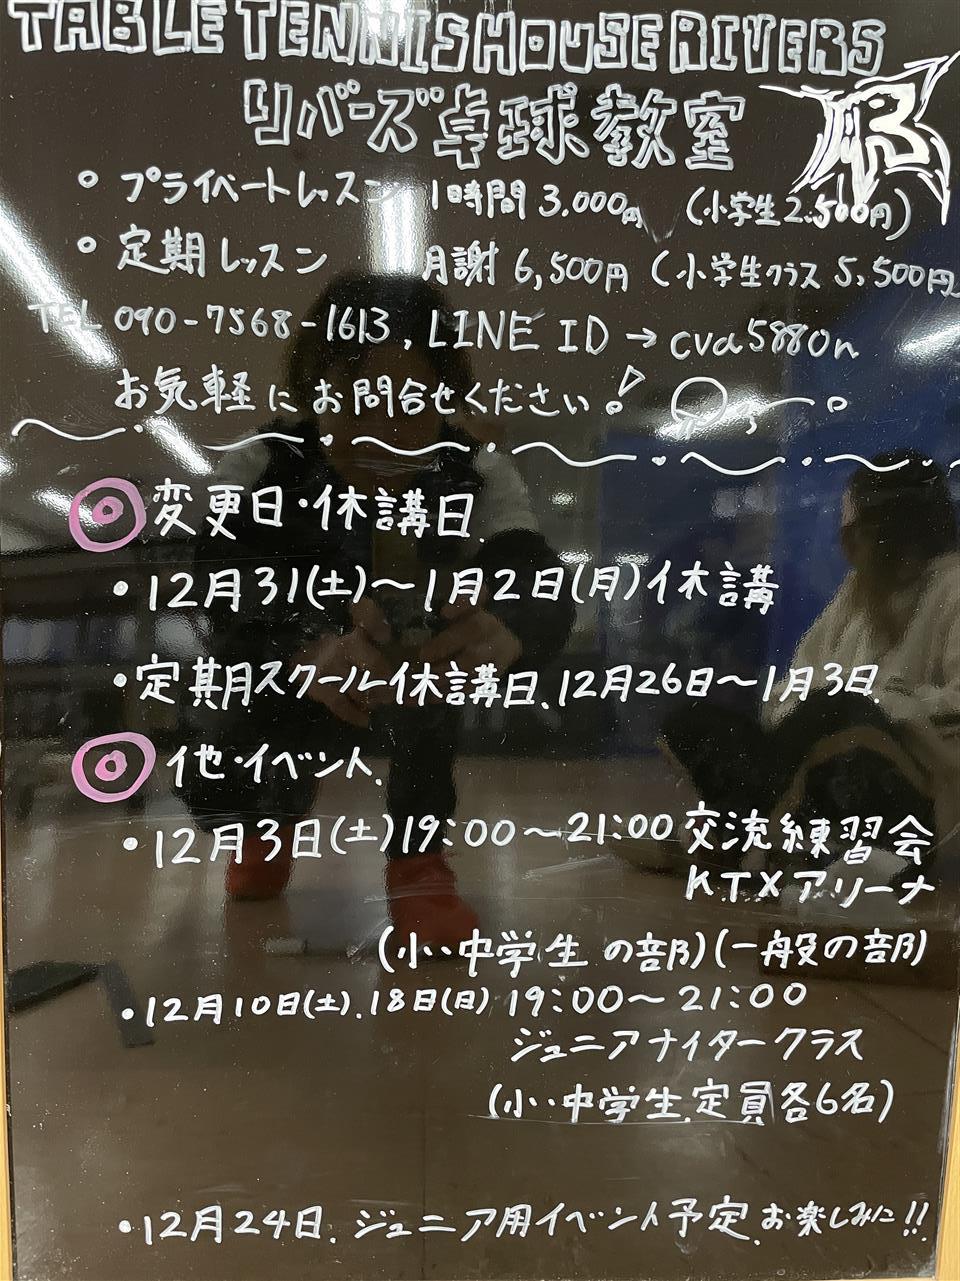 TABLE TENNIS HOUSE RIVERS
リバーズ卓球教室
R
○ プライベートレッスン 1時間 3.000円 (小学生 2.500円)
○ 定期レッスン 月謝 6,500円 (小学生クラス 5,500円
TEL 090-7568-1613, LINE ID → cva5880n
お気軽にお問合せください!
◎変更日・休講日.
・12月31(土)~1月2日(月)休講
・定期スクール休講日.12月26日~1月3日.
◎他・イベント.
・12月3日(土)19:00~21:00 交流練習会
KTXアリーナ
(小・中学生の部)(一般の部)
・12月10日(土).18日(日) 19:00~21:00
ジュニアナイタークラス
(小・中学生.定員各6名)
・12月24日.ジュニア用イベント予定.お楽しみに!!